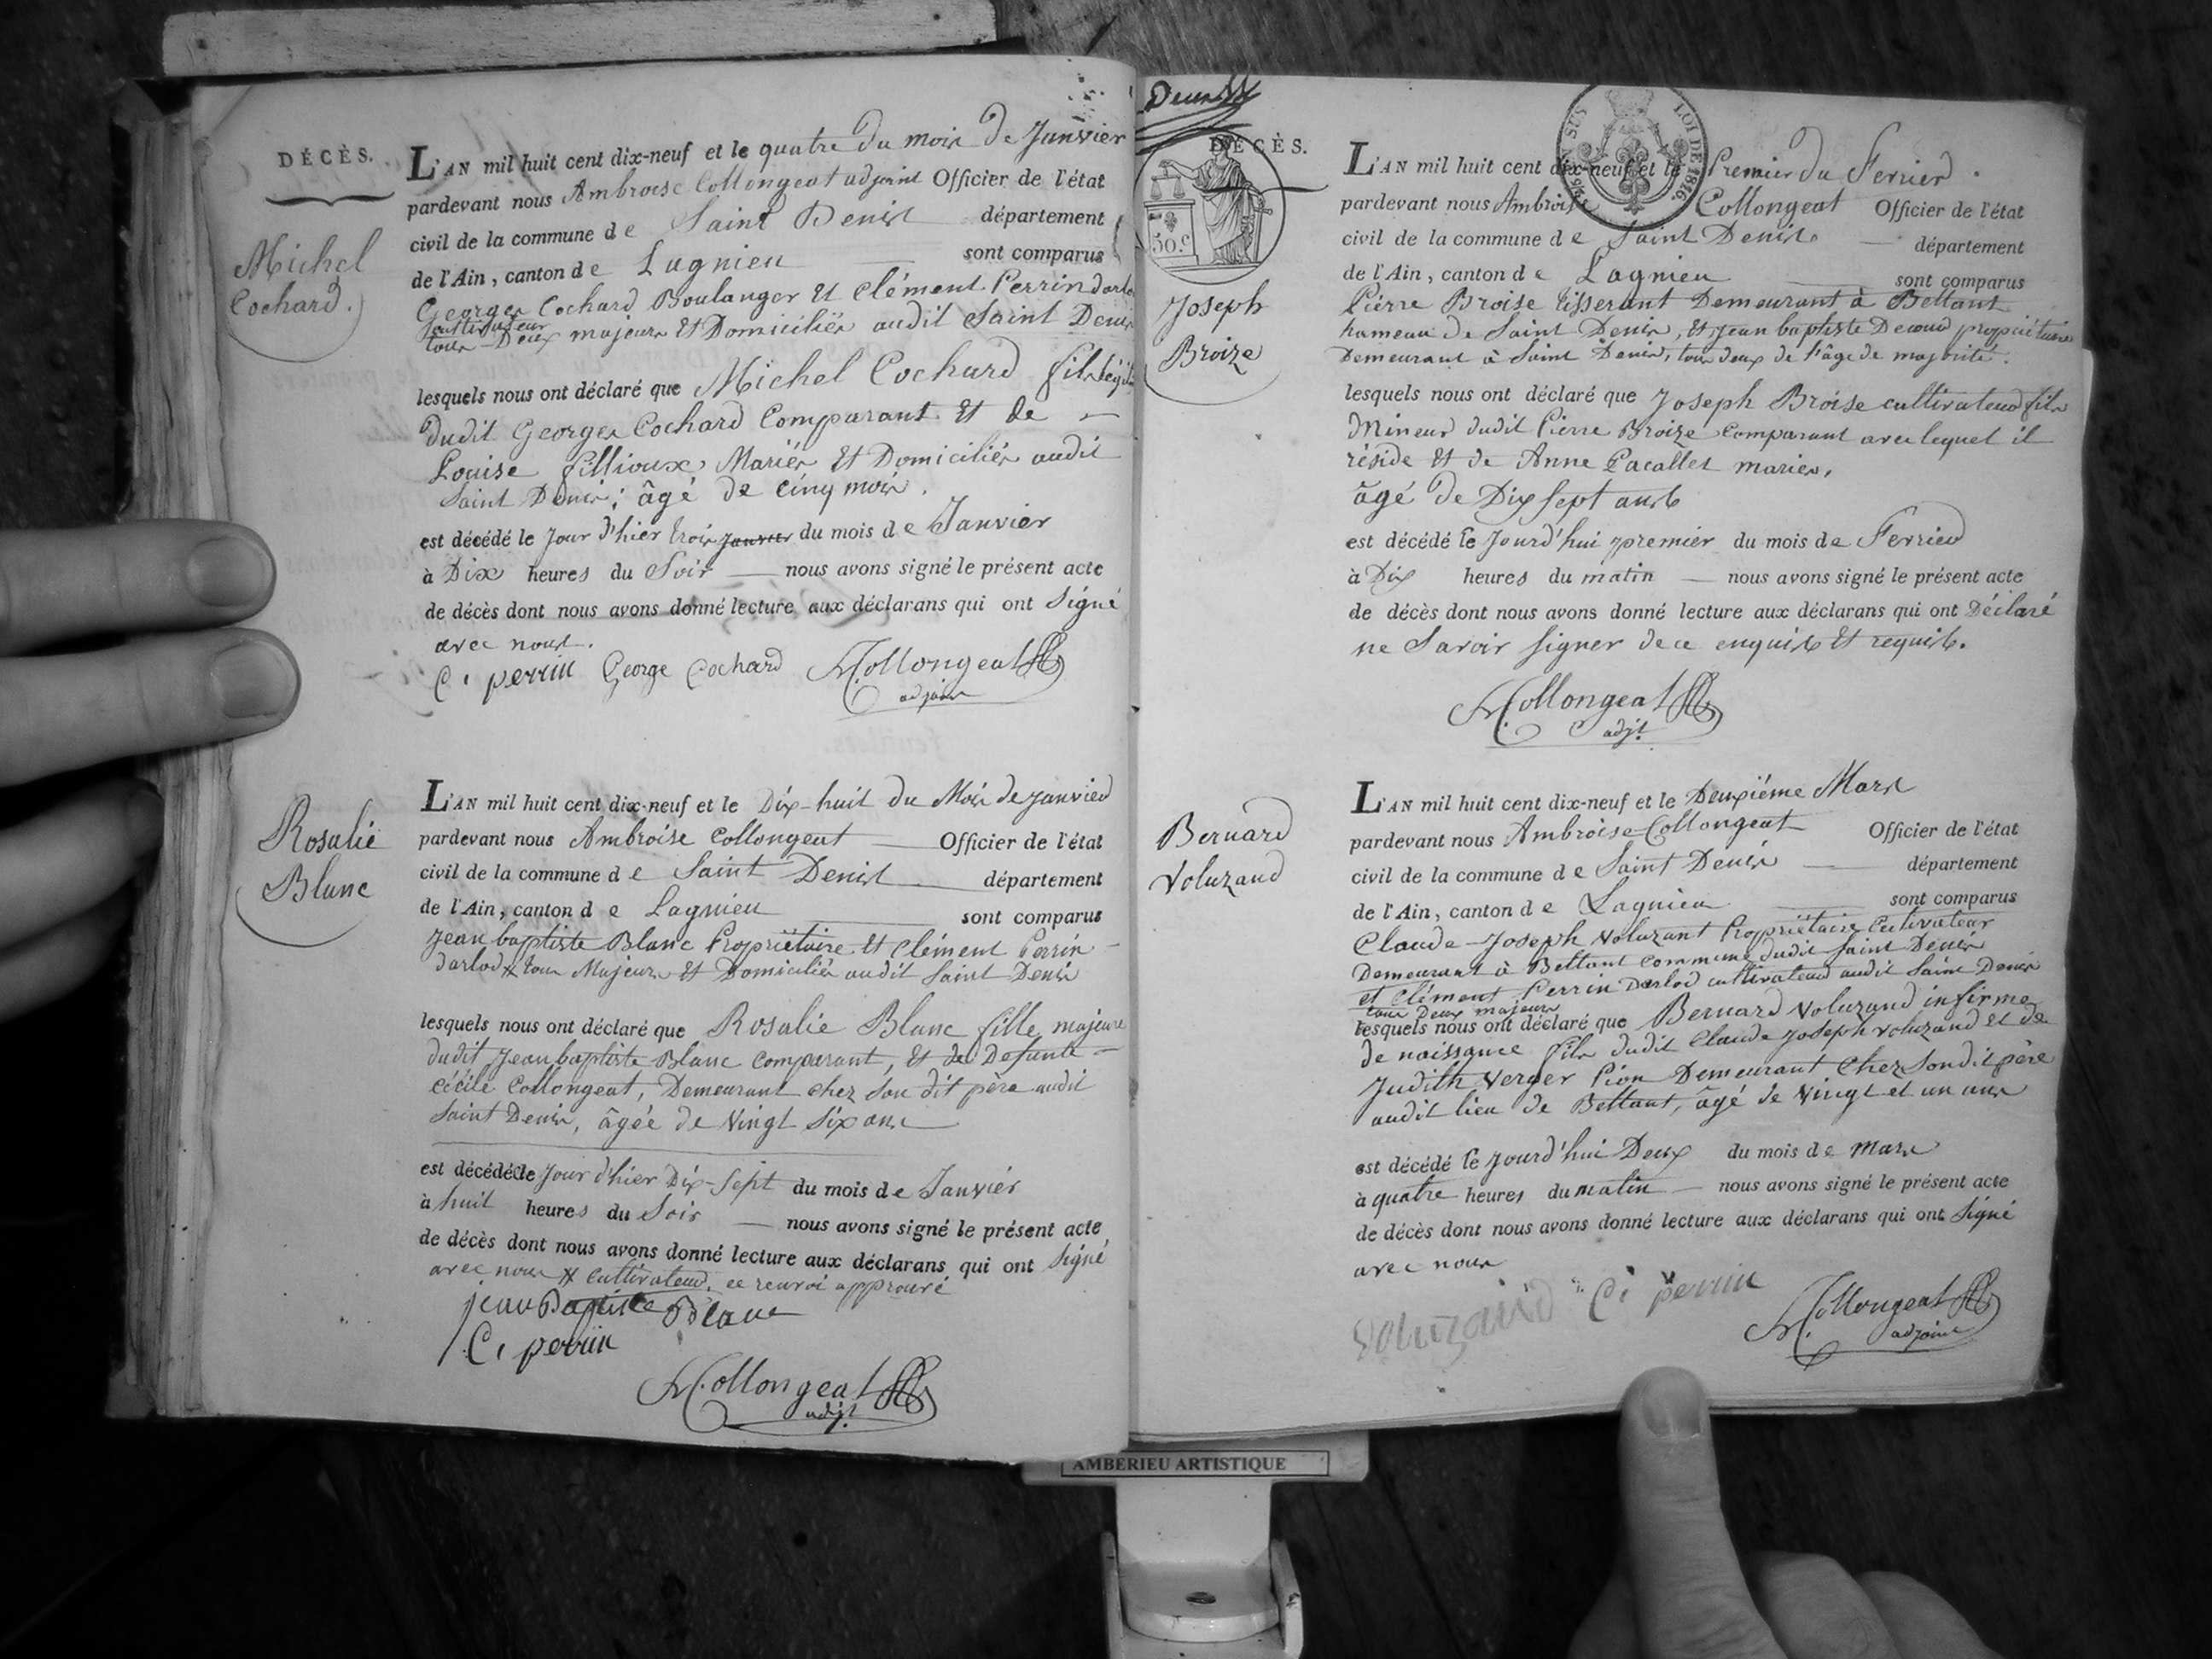 DÉCÈS.
Michel
Cochard.
L'AN mil huit cent dix-neuf et le quatre du mois de Janvier
pardevant nous Ambroise Collongeat adjoint Officier de l'état
civil de la commune de Saint Denis département
de l'Ain, canton de Lagnieu sont comparus
Georges Cochard Boulanger et Clément Perrin
cultivateur
tous Deux majeurs Et Domiciliés audit Saint Denis
lesquels nous ont déclaré que Michel Cochard fils
dudit Georges Cochard Comparant Et de
Louise fillioux Mariés Et Domiciliés audit
Saint Denis; âgé de cinq mois.
est décédé le jour d'hier trois Janvier du mois de Janvier
à Dix heures du Soir nous avons signé le présent acte
de décès dont nous avons donné lecture aux déclarans qui ont Signé
avec nous.
C. perrin George Cochard A. Collongeat
adjoint
Rosalie
Blanc
L'AN mil huit cent dix-neuf et le Dix-huit du Mois de janvier
pardevant nous Ambroise Collongeat Officier de l'état
civil de la commune de Saint Denis département
de l'Ain, canton de Lagnieu sont comparus
Jean baptiste Blanc Propriétaire Et Clément Perrin
darlod # tous Majeurs Et Domiciliés audit Saint Denis
lesquels nous ont déclaré que Rosalie Blanc fille majeure
dudit Jean baptiste Blanc comparant, et de Defunte
Cécile Collongeat, Demeurant chez son dit père audit
Saint Denis, âgée de Vingt Six ans
est décédée le jour d'hier Dix-Sept du mois de Janvier
à huit heures du Soir nous avons signé le présent acte
de décès dont nous avons donné lecture aux déclarans qui ont Signé
avec nous # cultivateur. ce renvoi approuvé
jean Baptiste Blanc
C. perrin
A. Collongeat
adjt.
DÉCÈS.
50.c
LOI DE 1816.
Joseph
Broize
L'AN mil huit cent dix-neuf et le Premier du Fevrier.
pardevant nous Ambroise Collongeat Officier de l'état
civil de la commune de Saint Denis département
de l'Ain, canton de Lagnieu sont comparus
Pierre Broise tisserant Demeurant à Bettant
hameau de Saint Denis, Et Jean baptiste propriétaire
Demeurant à Saint Denis, tous deux de l'âge de majorité.
lesquels nous ont déclaré que Joseph Broise cultivateur fils
Mineur dudit Pierre Broize comparant avec lequel il
réside Et de Anne Pacallet mariés,
âgé de Dix sept ans
est décédé le Jourd'hui premier du mois de Fevrier
à Dix heures du matin nous avons signé le présent acte
de décès dont nous avons donné lecture aux déclarans qui ont Déclaré
ne Savoir signer de ce enquis Et requis.
A. Collongeat
adjt.
Bernard
Voluzand
L'AN mil huit cent dix-neuf et le Deuxiéme Mars
pardevant nous Ambroise Collongeat Officier de l'état
civil de la commune de Saint Denis département
de l'Ain, canton de Lagnieu sont comparus
Claude-Joseph Voluzant Propriétaire Cultivateur
Demeurant à Bettant commune dudit Saint Denis
et Clément Perrin Darlod cultivateur audit Saint Denis
tous Deux majeurs
lesquels nous ont déclaré que Bernard Voluzand infirme
de naissance fils dudit Claude Joseph Voluzand Et de
Judith Verger Pion Demeurant Chez Sondit père
audit lieu de Bettant, âgé de Vingt et un ans
est décédé le jourd'hui Deux du mois de mars
à quatre heures du matin nous avons signé le présent acte
de décès dont nous avons donné lecture aux déclarans qui ont Signé
avec nous
Voluzand C. perrin A. Collongeat
adjoint
AMBÉRIEU ARTISTIQUE